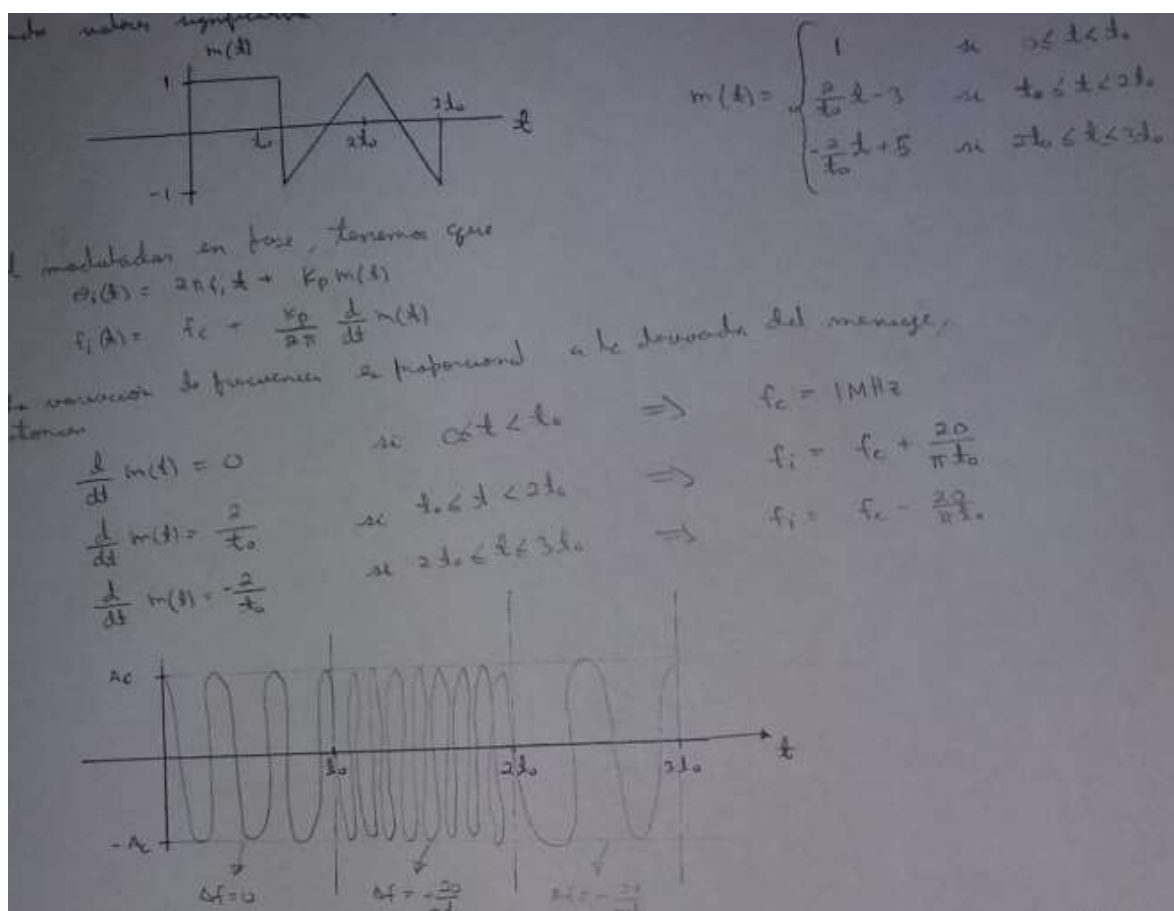 valores
m(t)
1
t₀
2t₀
3t₀
t
-1
m(t) = { 1 si 0 ≤ t < t₀
2/t₀ t - 3 si t₀ ≤ t < 2t₀
-2/t₀ t + 5 si 2t₀ ≤ t ≤ 3t₀
en fase, tenemos que
θᵢ(t) = 2πfᵢ t + Kp m(t)
fᵢ(t) = fc + Kp/2π d/dt m(t)
variación de frecuencia es proporcional a la derivada del mensaje,
d/dt m(t) = 0 si 0 ≤ t < t₀ ⇒ fc = 1MHz
d/dt m(t) = 2/t₀ si t₀ ≤ t < 2t₀ ⇒ fᵢ = fc + 20/πt₀
d/dt m(t) = -2/t₀ si 2t₀ ≤ t ≤ 3t₀ ⇒ fᵢ = fc - 20/πt₀
Ac
t₀
2t₀
3t₀
t
-Ac
Δf=0
Δf = -20/
Δf = -20/